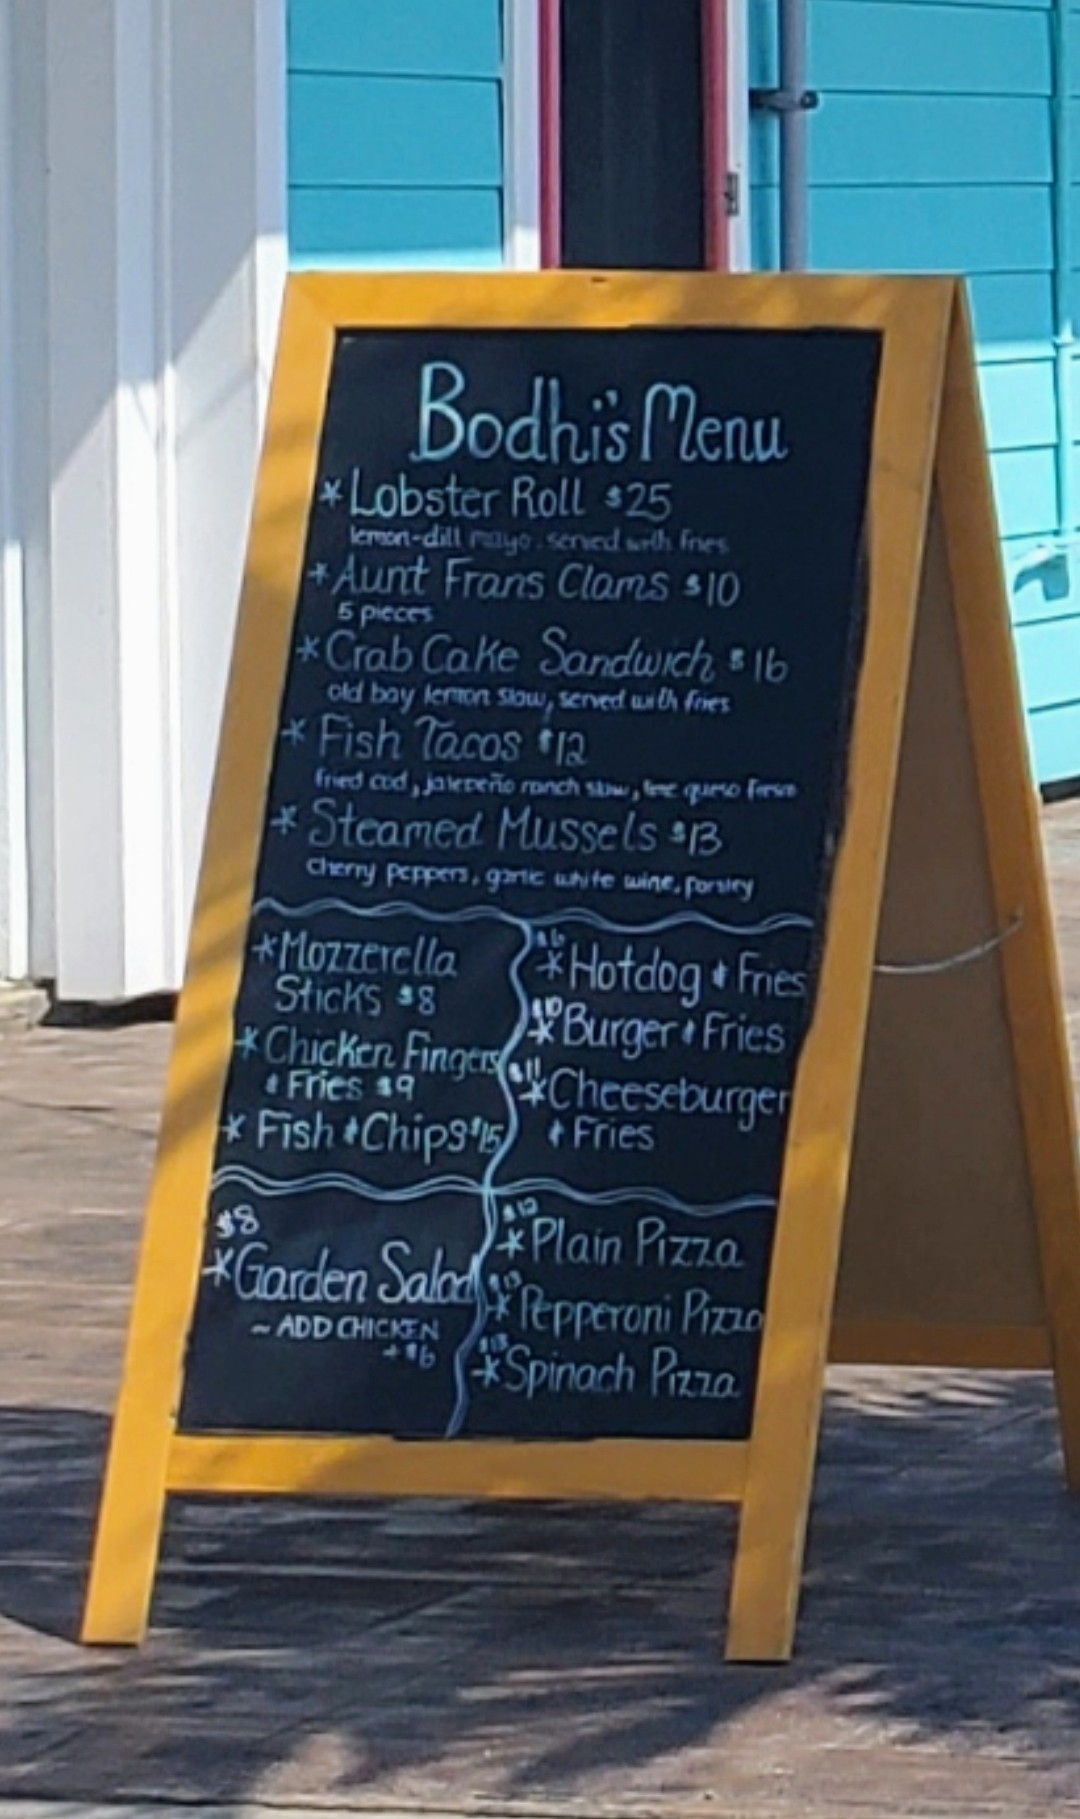 Bodhi's Menu
* Lobster Roll $25
lemon-dill mayo. served with fries
* Aunt Frans Clams $10
5 pieces
* Crab Cake Sandwich $16
old bay lemon slaw, served with fries
* Fish Tacos $12
fried cod, jalepeño ranch slaw, lime queso fresco
* Steamed Mussels $13
cherry peppers, garlic white wine, parsley
* Mozzerella
Sticks $8
* Chicken Fingers
& Fries $9
* Fish & Chips $15
$6
* Hotdog & Fries
$10
* Burger & Fries
$11
* Cheeseburger
& Fries
$8
* Garden Salad
~ ADD CHICKEN
+ $6
$12
* Plain Pizza
$13
* Pepperoni Pizza
$13
* Spinach Pizza